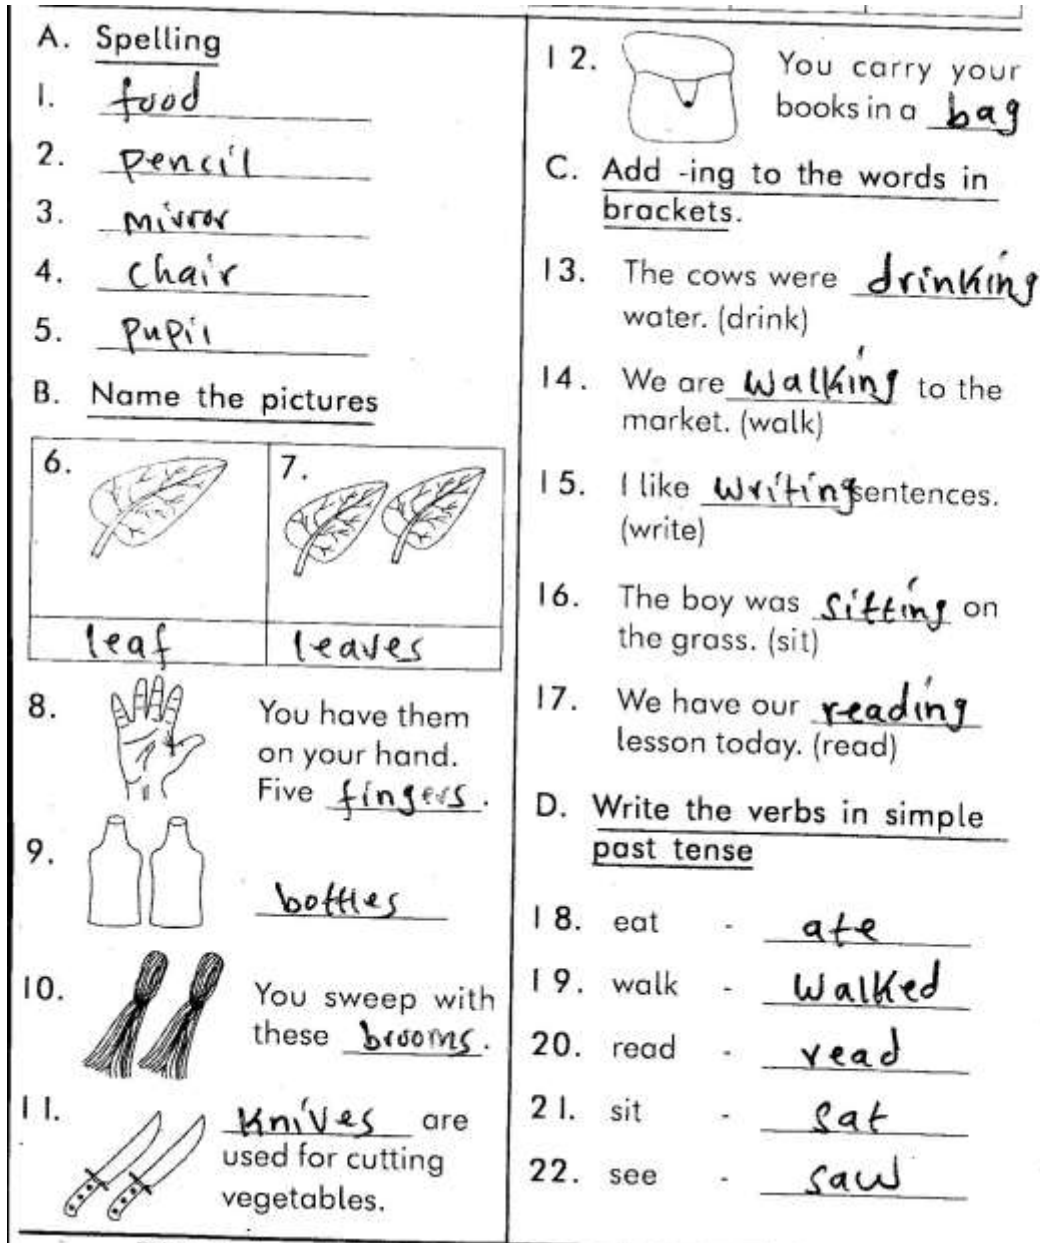 A. Spelling
1. food
2. pencil
3. mirror
4. chair
5. pupil
B. Name the pictures
6.
leaf
7.
leaves
8. You have them
on your hand.
Five fingers.
9. bottles
10. You sweep with
these brooms.
11. Knives are
used for cutting
vegetables.
12. You carry your
books in a bag
C. Add -ing to the words in
brackets.
13. The cows were drinking
water. (drink)
14. We are walking to the
market. (walk)
15. I like writing sentences.
(write)
16. The boy was sitting on
the grass. (sit)
17. We have our reading
lesson today. (read)
D. Write the verbs in simple
past tense
18. eat - ate
19. walk - walked
20. read - read
21. sit - sat
22. see - saw